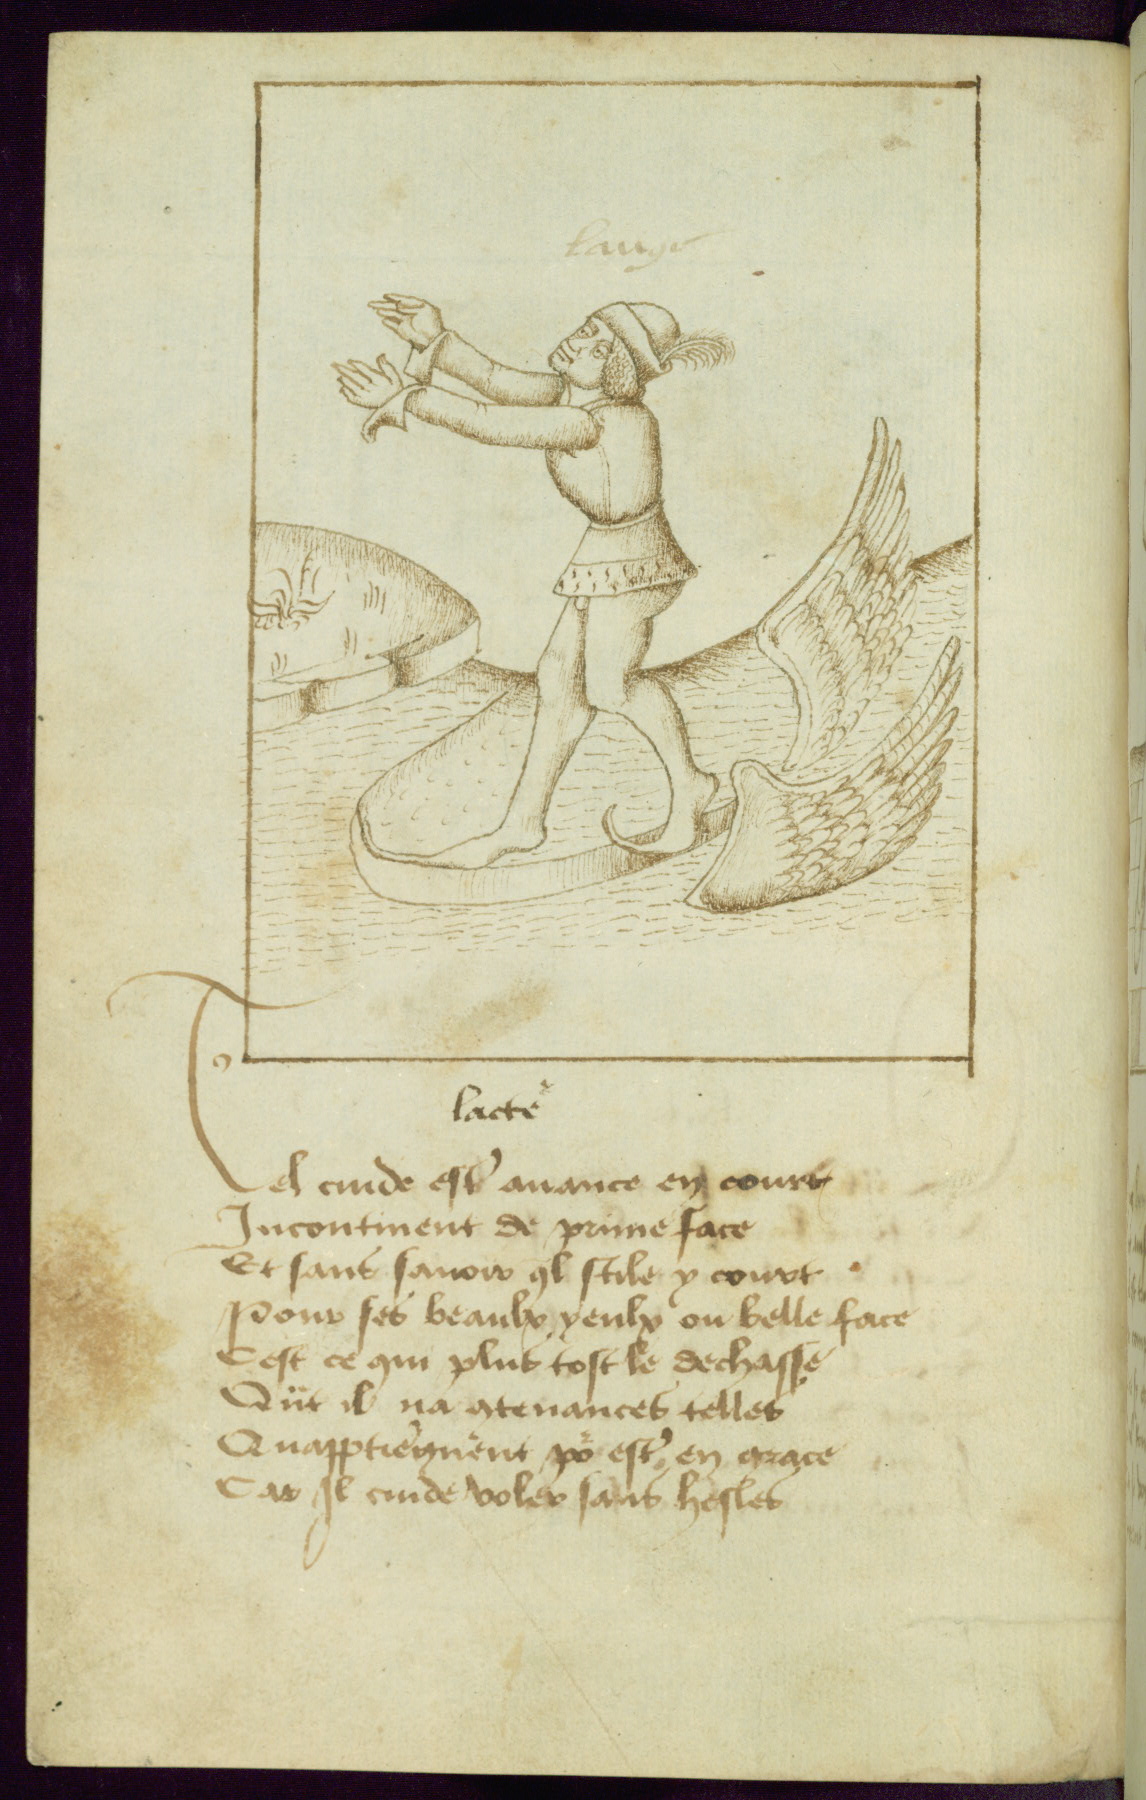 lange
lacteˀ
Tel cuide estˀ auance en court
Incontinent de prime face
Et sans sauoir ql stile y court
Pour ses beaulx yeulx ou belle face
Cest ce qui plus tost le dechasse
Qūt il na 9tenances telles
Quapptiēgnēt poˀ estˀ en grace
Car Il cuide voler sans hesles